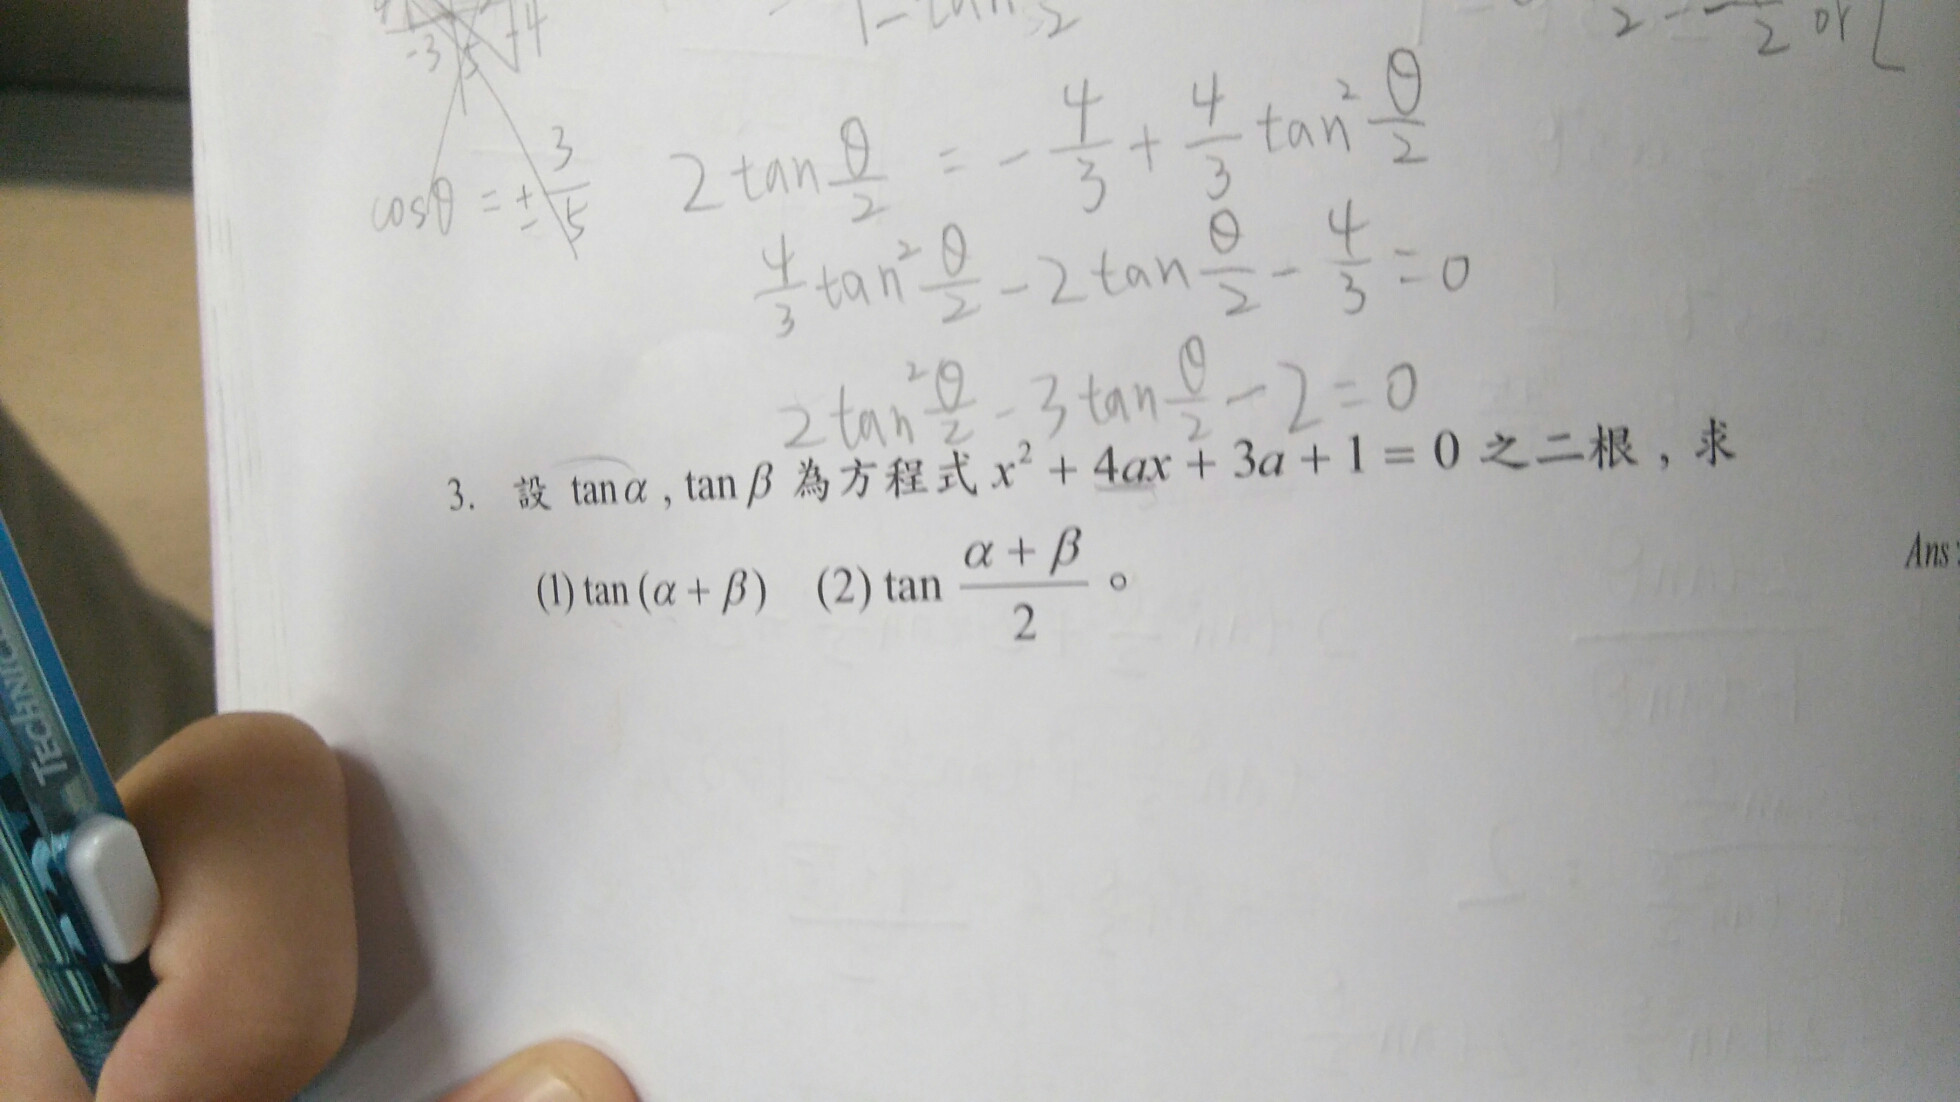 -3 5 -4
2 or
2 tan θ/2 = - 4/3 + 4/3 tan² θ/2
cosθ = ± 3/5
4/3 tan² θ/2 - 2 tan θ/2 - 4/3 = 0
2 tan² θ/2 - 3 tan θ/2 - 2 = 0
3. 設 tan α , tan β 為方程式 x² + 4ax + 3a + 1 = 0 之二根，求
(1) tan (α + β) (2) tan (α + β)/2 。
Ans: